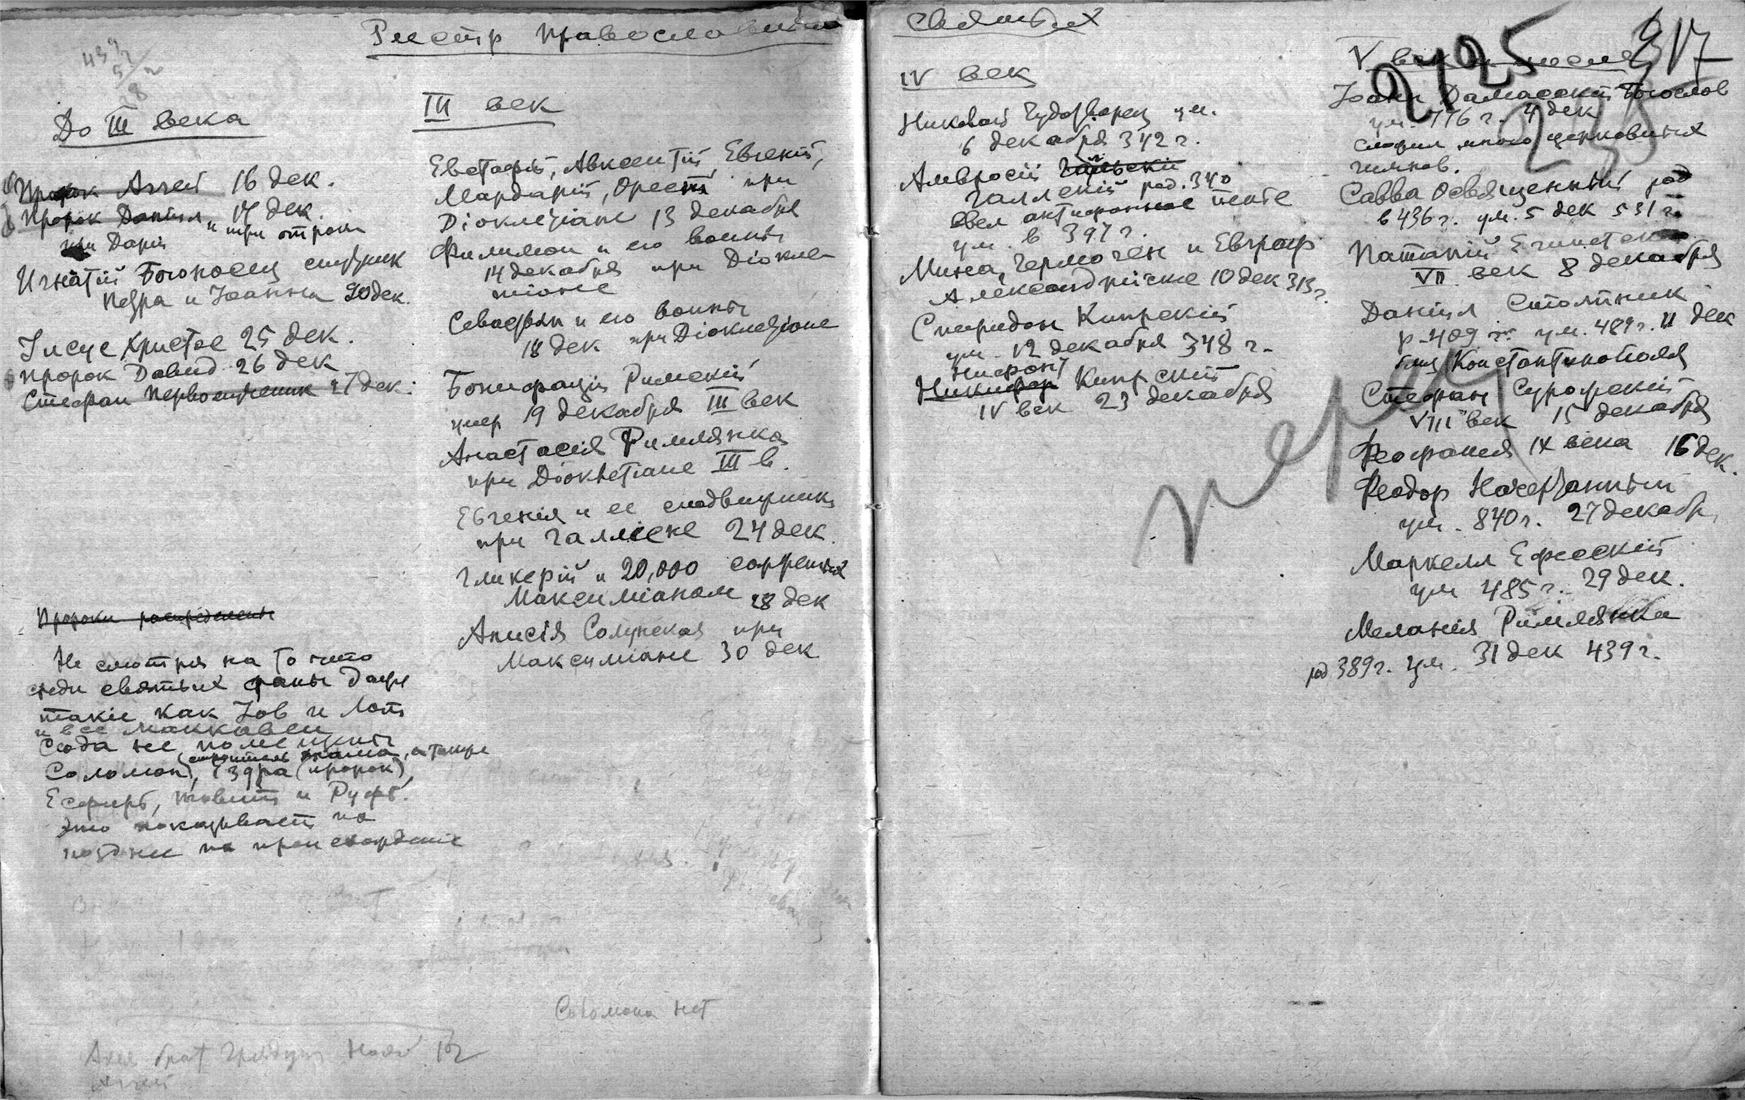 Реестр православных святых
До III века
Пророк Аггей 16 дек.
Пророк Даниил и три отрока 17 дек.
при Дарии
Игнатiй Богоносец спутник
Петра и Iоанна 20 дек.
Iисус Христос 25 дек.
Пророк Давид 26 дек
Стефан Первомученик 27 дек.
Пророки
Не смотря на то что
среди святых даны даже
такiе как Iов и Лот
и все маккавеи
сюда не помещены
Соломон (строитель храма), а также
Ездра (пророк),
Есфирь, Товит и Руфь.
Это показывает на
позднее их происхожденiе
Соломона нет
III век
Евстафiй, Авксентiй, Евгенiй,
Мардарiй, Орест при
Дiоклетiане 13 декабря
Филимон и его воины
14 декабря при Дiокле-
тiане
Севастьян и его воины
18 дек при Дiоклетiане
Бонифацiй Римскiй
умер 19 декабря III век
Анастасiя Римлянка
при Дiоклетiане III в.
Евгенiя и ее сподвижник
при Галлiене 24 дек.
Гликерiй и 20,000 сожженных
Максимiаном 28 дек
Анисiя Солунская при
Максимiане 30 дек
IV век
Николай Чудотворец ум.
6 декабря 342 г.
Амвросiй
Галльскiй род. 340
ввел антифонное пенiе
ум. в 397 г.
Мина, Гермоген и Евграф
Александрiйские 10 дек 313 г.
Спиридон Кипрскiй
ум. 12 декабря 348 г.
Нифонт
Никифор Кипрский
IV век 23 декабря
V век и после
2125
317
238
Iоанн Дамаскин Богослов
ум. 776 г. 4 дек
сложил много церковных
гимнов.
Савва Освященный род
в 436 г. ум. 5 дек 531 г.
Патапiй Египетск
VII век 8 декабря
Данiил Столпник
р. 409 г. ум. 489 г. 11 дек
близ Константинополя
Стефан Сурожскiй
VIII век 15 декабря
Феофания IX века 16 дек.
Феодор Начертанный
ум. 840 г. 27 декабр.
Маркелл Ефесскiй
ум 485 г. 29 дек.
Меланiя Римлянка
род 389 г. ум. 31 дек 439 г.